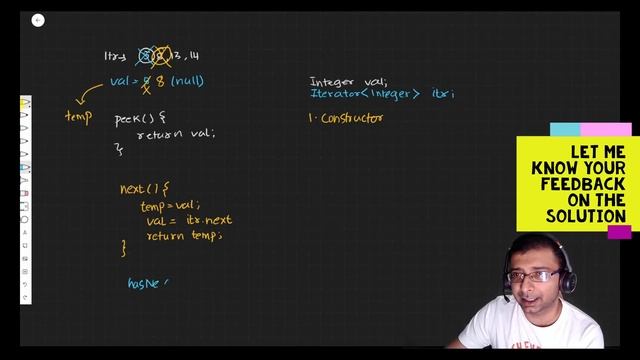 Itr → 5, 8, 13, 14
val = 5 8 (null)
temp
peek() {
return val;
}
next() {
temp = val;
val = itr.next
return temp;
}
hasNe
Integer val;
Iterator<Integer> itr;
1. Constructor
LET ME
KNOW YOUR
FEEDBACK
ON THE
SOLUTION